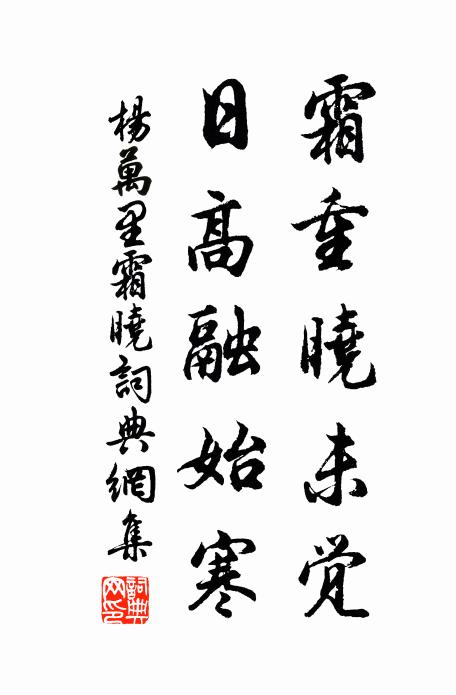 霜重曉未觉
日高融始寒
楊萬里霜曉詞典網集
詞典
网印